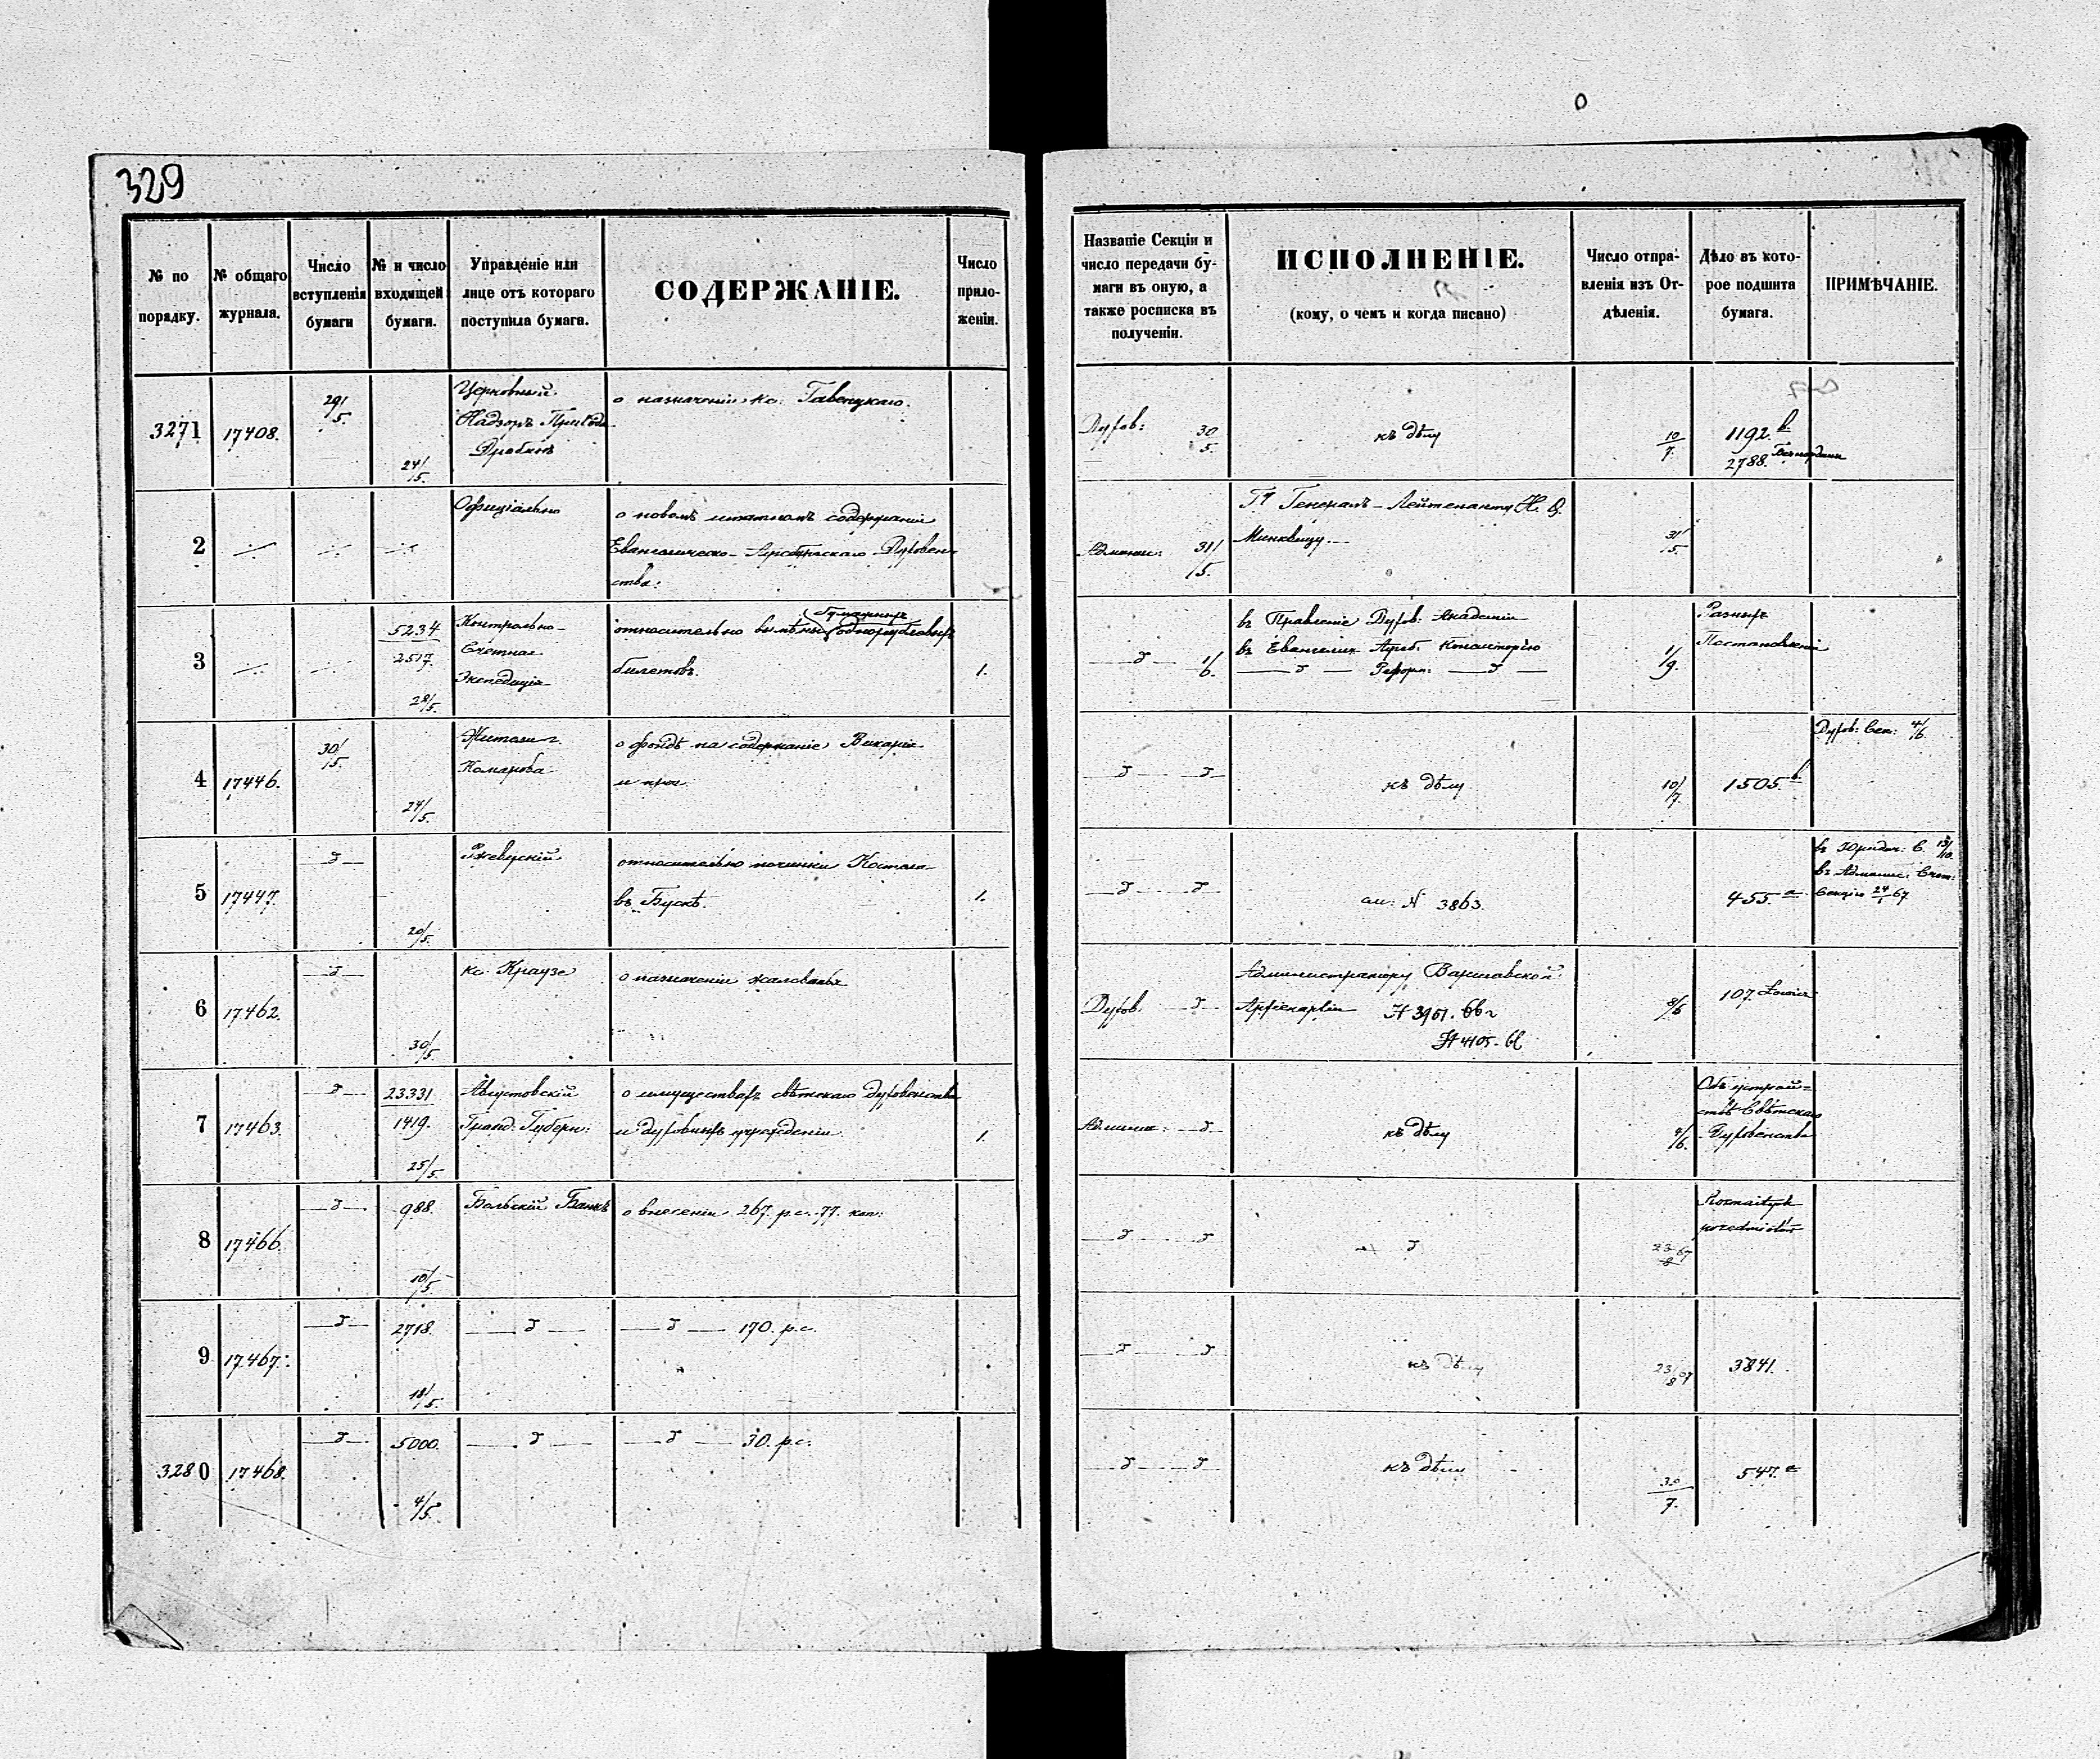 329
№ по порядку.
№ общаго журнала.
Число вступленія бумаги
№ и число входящей бумаги.
Управленіе или лице отъ котораго поступила бумага.
СОДЕРЖАНІЕ.
Число приложеніи.
Названіе Секціи и число передачи бумаги въ оную, а также росписка въ полученіи.
ИСПОЛНЕНІЕ.
(кому, о чемъ и когда писано)
Число отправленія изъ Отдѣленія.
Дѣло въ которое подшита бумага.
ПРИМѢЧАНІЕ.
3271
17408.
29/5.
24/5.
Церковный
Надзоръ
о назначеніи кс.
Духов:
30/5.
къ дѣлу
10/7.
1192. b
2788.
2
Офиціально
о новомъ штатномъ содержаніи
Евангелическо-Аугсбургскаго Духовен-
ства.
31/5.
Гу Генералъ-Лейтенанту
Минквицу
31/5.
3
5234
2517.
28/5.
Контрольно-
Счетная
Экспедиція
бумажныхъ
относительно вымѣны однорублевыхъ
билетовъ.
1.
1/6.
въ Правленіе Духов: Академіи
въ Евангелич. Аугсб. Консисторію
— д — Реформ: — д —
1/9.
Разныхъ
Постановленій
4
17446.
30/5.
24/5.
Жители г.
Комарова
о фондѣ на содержаніе Викарія
и проч.
— д — д —
къ дѣлу
10/7.
1505. b
Духов: Сек: 4/6.
5
17447.
— д —
20/5.
Ржевускій
относительно починки Костела
въ Бускѣ.
1.
— д — д —
см: N 3863.
455. a
въ Юридич. С. 13/10.
въ Админис: Счет.
Секцію 24/1 67
6
17462.
— д —
30/5.
кс. Краузе
о назначеніи жалованья
Духов. — д —
Администратору Варшавской
Архіепархіи N 3951. 66 г
N 4105. 66
8/6
107. Łowicz
7
17463.
— д —
23331
1419.
25/5.
Августовскій
Гражд. Губерн:
о имуществахъ свѣтскаго духовенства
и духовныхъ учрежденіи
1.
Админис: — д —
къ дѣлу
9/6.
Объ устрой-
ствѣ Свѣтскаго
Духовенства
8
17466.
— д —
988.
10/5
Польскій Банкъ
о внесеніи 267. р.с. 77. коп:
— д — д —
д
23/8 67
Rozmaitych
przedmiotów
9
17467.
— д —
2718.
18/5.
— д —
— д — 170. р.с.
— д — д —
къ дѣлу
23/8 67
3841.
3280
17468.
— д —
5000.
4/5.
— д —
— д — 30. р.с.
— д — д —
къ дѣлу
30/7.
547. a